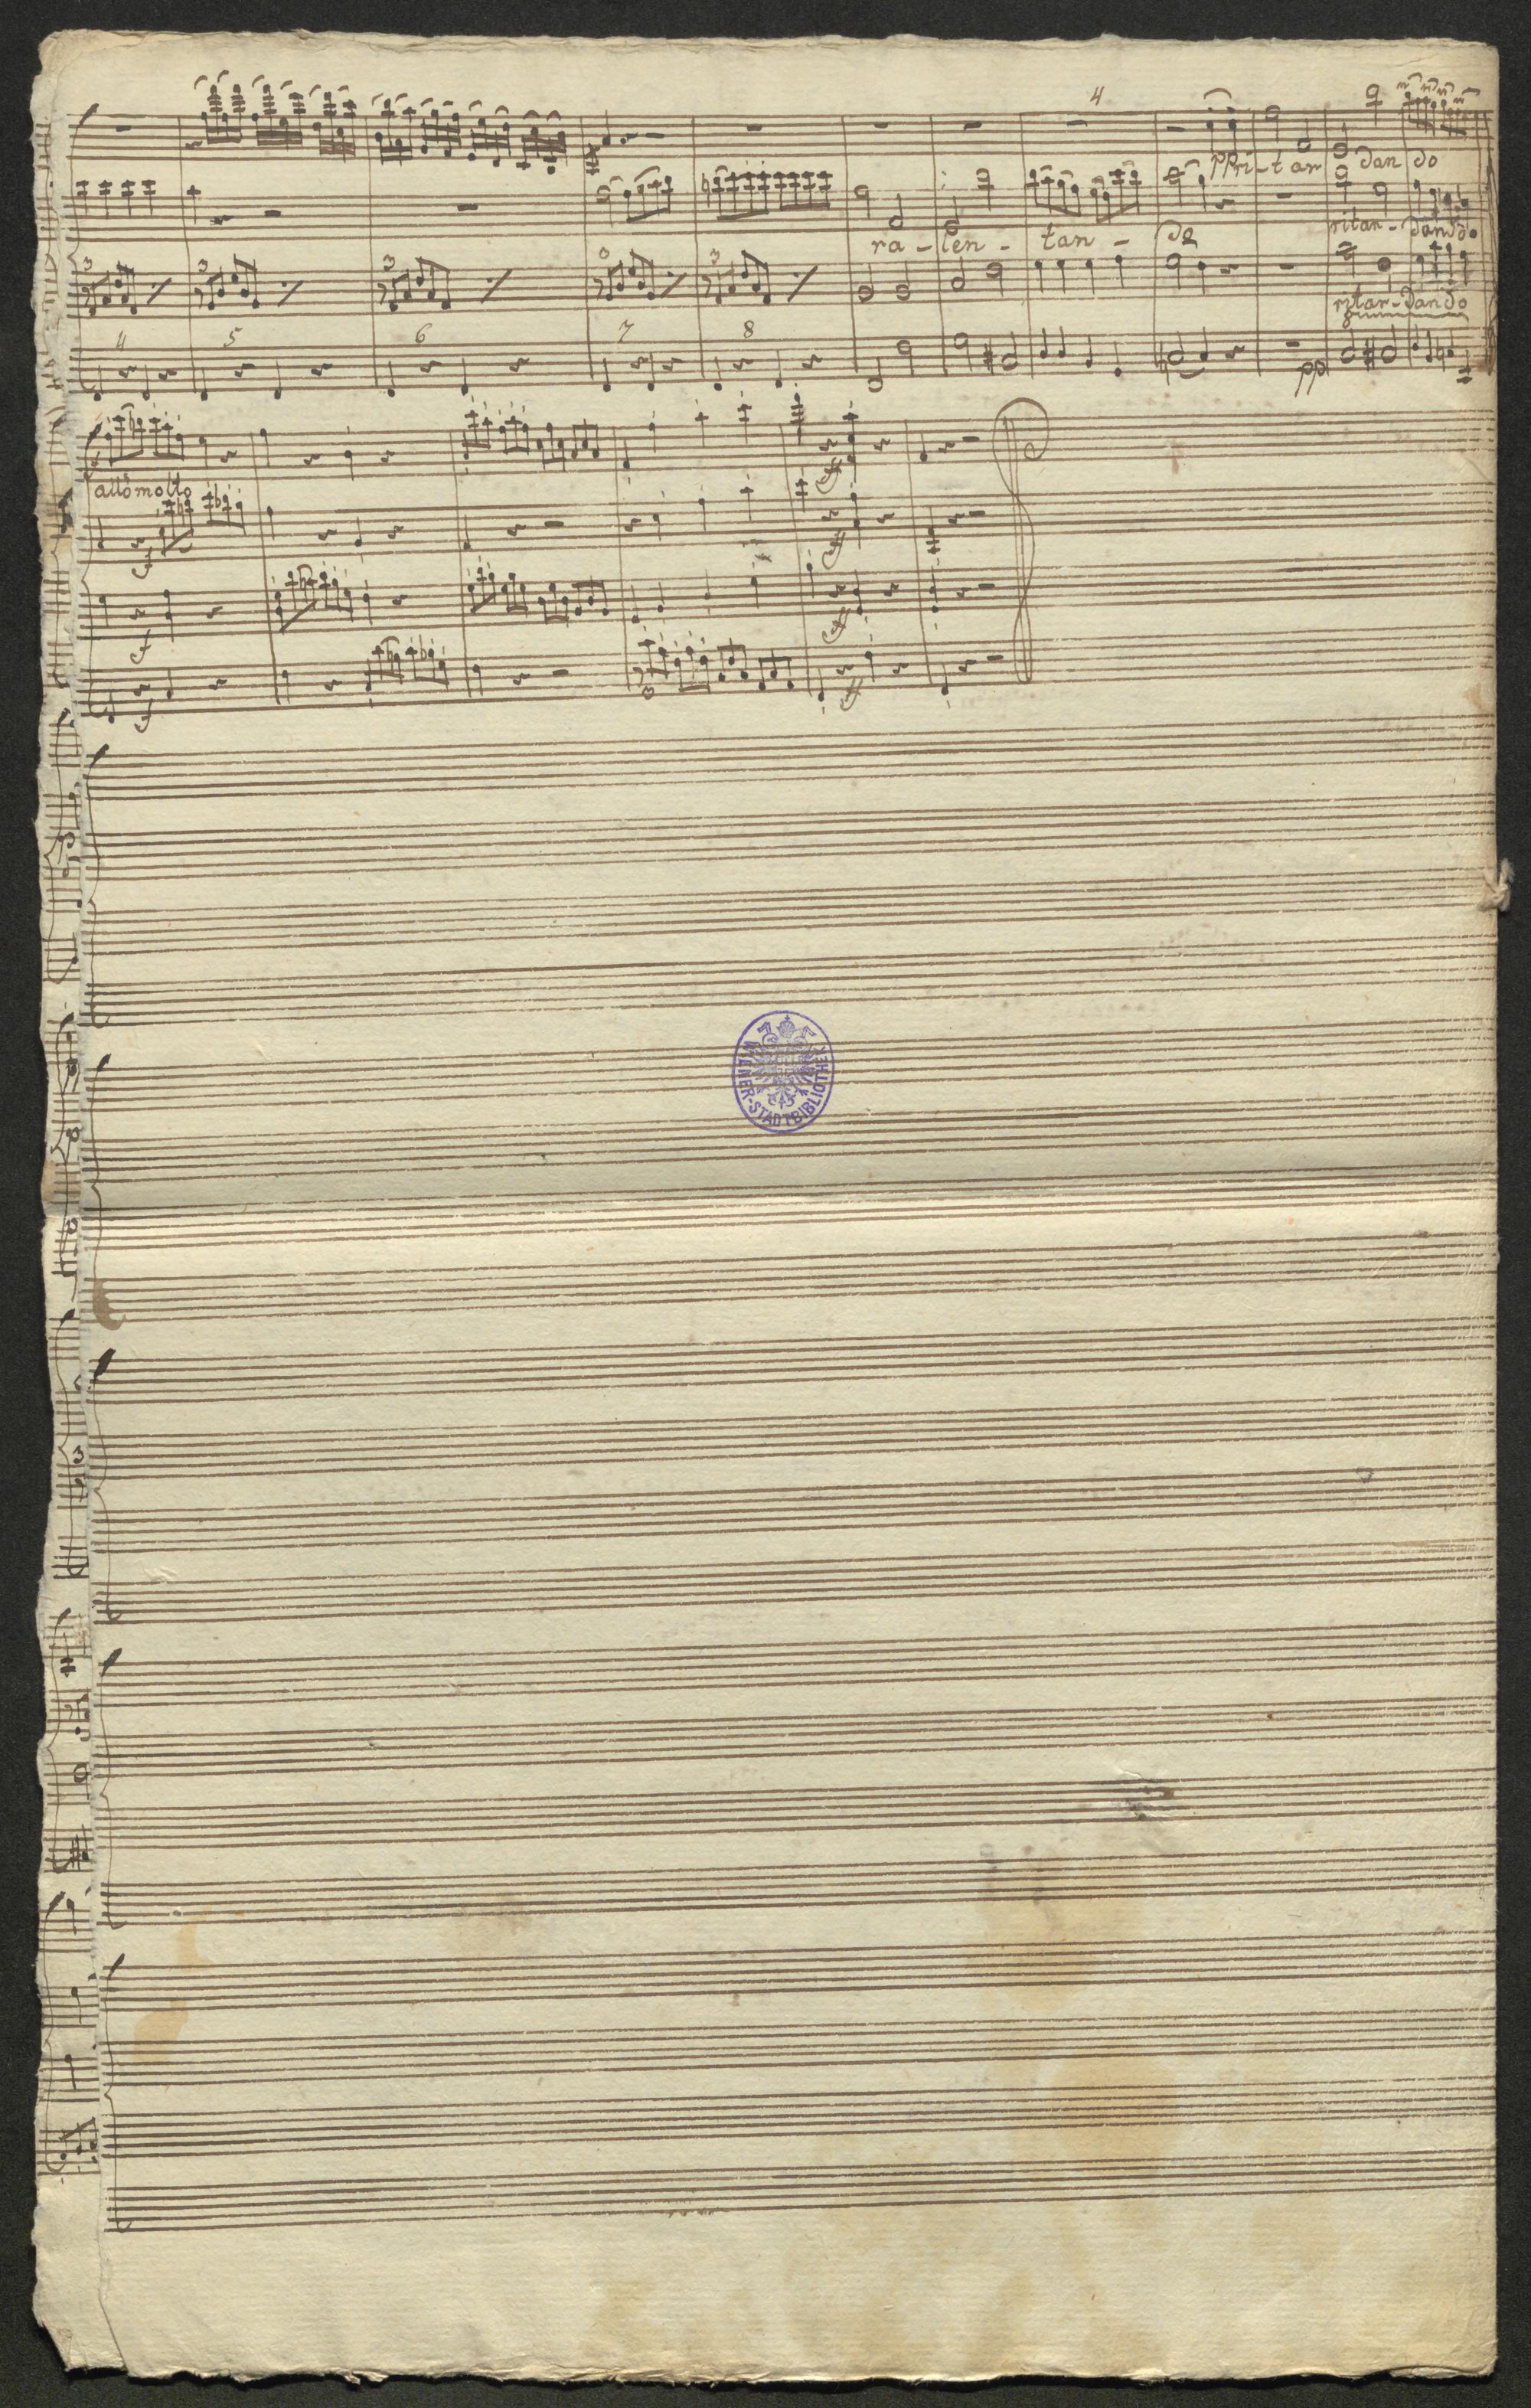 4
ppri-tar dan do
ra - len - tan - do
ritar - dando
3 3 3 0 3
ritar-dando
4 5 6 7 8
pp
f
allo molto
f
f
f
f
f
f
WIENER-STADTBIBLIOTHEK